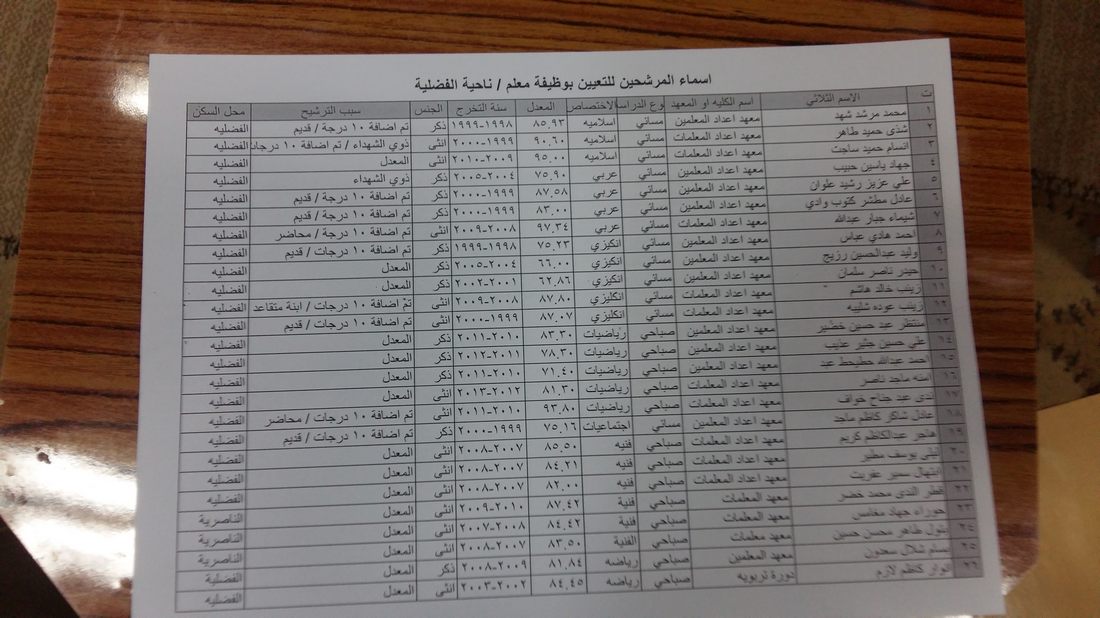 اسماء المرشحين للتعيين بوظيفة معلم / ناحية الفضلية
ت الاسم الثلاثي اسم الكليه او المعهد نوع الدراسة الاختصاص المعدل سنة التخرج الجنس سبب الترشيح محل السكن
١ محمد مرشد شهد معهد اعداد المعلمين مسائي اسلاميه ٨٥.٩٣ ١٩٩٨-١٩٩٩ ذكر تم اضافة ١٠ درجة / قديم الفضليه
٢ شذى حميد طاهر معهد اعداد المعلمات مسائي اسلاميه ٩٠.٦٠ ١٩٩٩-٢٠٠٠ انثى ذوي الشهداء / تم اضافة ١٠ درجات الفضليه
٣ ابتسام حميد ساجت معهد اعداد المعلمات مسائي اسلاميه ٩٥.٠٠ ٢٠٠٩-٢٠١٠ انثى المعدل الفضليه
٤ جهاد ياسين حبيب معهد اعداد المعلمين مسائي عربي ٧٥.٩٠ ٢٠٠٤-٢٠٠٥ ذكر ذوي الشهداء الفضليه
٥ علي عزيز رشيد علوان معهد اعداد المعلمين مسائي عربي ٨٧.٥٨ ١٩٩٩-٢٠٠٠ ذكر تم اضافة ١٠ درجة / قديم الفضليه
٦ عادل مطشر كتوب وادي معهد اعداد المعلمين مسائي عربي ٨٣.٠٠ ١٩٩٩-٢٠٠٠ ذكر تم اضافة ١٠ درجة / قديم الفضليه
٧ شيماء جبار عبدالله معهد اعداد المعلمات مسائي عربي ٩٧.٣٤ ٢٠٠٨-٢٠٠٩ انثى تم اضافة ١٠ درجة / محاضر الفضليه
٨ احمد هادي عباس معهد اعداد المعلمين مسائي انكيزي ٧٥.٢٣ ١٩٩٨-١٩٩٩ ذكر تم اضافة ١٠ درجات / قديم الفضليه
٩ وليد عبدالحسين رزيج معهد اعداد المعلمين مسائي انكيزي ٦٦.٠٠ ٢٠٠٤-٢٠٠٥ ذكر المعدل الفضليه
١٠ حيدر ناصر سلمان معهد اعداد المعلمين مسائي انكيزي ٦٢.٨٦ ٢٠٠١-٢٠٠٢ ذكر المعدل الفضليه
١١ زينب خالد هاشم معهد اعداد المعلمات مسائي انكليزي ٨٧.٨٠ ٢٠٠٨-٢٠٠٩ انثى تم اضافة ١٠ درجات / ابنة متقاعد الفضليه
١٢ زينب عوده شليبه معهد اعداد المعلمات مسائي انكليزي ٨٧.٠٧ ١٩٩٩-٢٠٠٠ انثى تم اضافة ١٠ درجات / قديم الفضليه
١٣ منتظر عبد حسين خضير معهد اعداد المعلمين صباحي رياضيات ٨٣.٣٠ ٢٠١٠-٢٠١١ ذكر المعدل الفضليه
١٤ علي حسين جثير عذيب معهد اعداد المعلمين صباحي رياضيات ٧٨.٣٠ ٢٠١١-٢٠١٢ ذكر المعدل الفضليه
١٥ احمد عبدالله عبد معهد اعداد المعلمين صباحي رياضيات ٧١.٤٠ ٢٠١٠-٢٠١١ ذكر المعدل الفضليه
١٦ امنه ماجد ناصر معهد اعداد المعلمات صباحي رياضيات ٨١.٣٠ ٢٠١٢-٢٠١٣ انثى المعدل الفضليه
١٧ ندى عبد جناح معهد اعداد المعلمات صباحي رياضيات ٩٣.٨٠ ٢٠١٠-٢٠١١ انثى تم اضافة ١٠ درجات / محاضر الفضليه
١٨ عادل شاكر كاظم ماجد معهد اعداد المعلمين مسائي اجتماعيات ٧٥.١٦ ١٩٩٩-٢٠٠٠ ذكر تم اضافة ١٠ درجات / قديم الفضليه
١٩ هاجر عبدالكاظم كريم معهد اعداد المعلمات صباحي فنيه ٨٥.٥٠ ٢٠٠٧-٢٠٠٨ انثى المعدل الفضليه
٢٠ لبنى يوسف مطير معهد اعداد المعلمات صباحي فنيه ٨٤.٢١ ٢٠٠٧-٢٠٠٨ انثى المعدل الفضليه
٢١ ابتهال سمير عفريت معهد اعداد المعلمات صباحي فنيه ٨٢.٠٠ ٢٠٠٧-٢٠٠٨ انثى المعدل الفضليه
٢٢ قطر الندى محمد خضر معهد المعلمات صباحي فنية ٨٧.٤٢ ٢٠١٠-٢٠٠٩ انثى المعدل الناصرية
٢٣ حوراء جهاد مغامس معهد المعلمات صباحي فنية ٨٤.٤٢ ٢٠٠٨-٢٠٠٧ انثى المعدل الناصرية
٢٤ بتول طاهر محسن حسين معهد معلمات صباحي الفنية ٨٣.٥٠ ٢٠٠٧-٢٠٠٨ انثى المعدل الناصرية
٢٥ شلال سعدون معهد المعلمين صباحي رياضه ٨١.٨٤ ٢٠٠٩-٢٠٠٨ ذكر المعدل الفضلية
٢٦ انوار كاظم لازم دورة تربويه صباحي رياضه ٨٤.٤٥ ٢٠٠٢-٢٠٠٣ انثى المعدل الفضليه